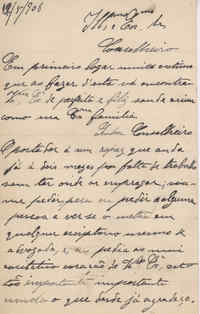 12/5/906
Illmo e Exmo Snr
Conselheiro
Em primeiro logar muito estimo
que ao fazer d'esta vá encontrar
V. Exª de perfeita e feliz saude assim
como sua Exmª familia
Conselheiro
Portador é um rapaz que anda
já á dois mezes por falta de trabalho
sem ter onde se empregar;
pedir para pedir alguma
pessoa a ver se o metia em
qualquer escriptorio mesmo de
advogado, e, ao
coração de V. Exª
importante importante
o que desde já agradeço.